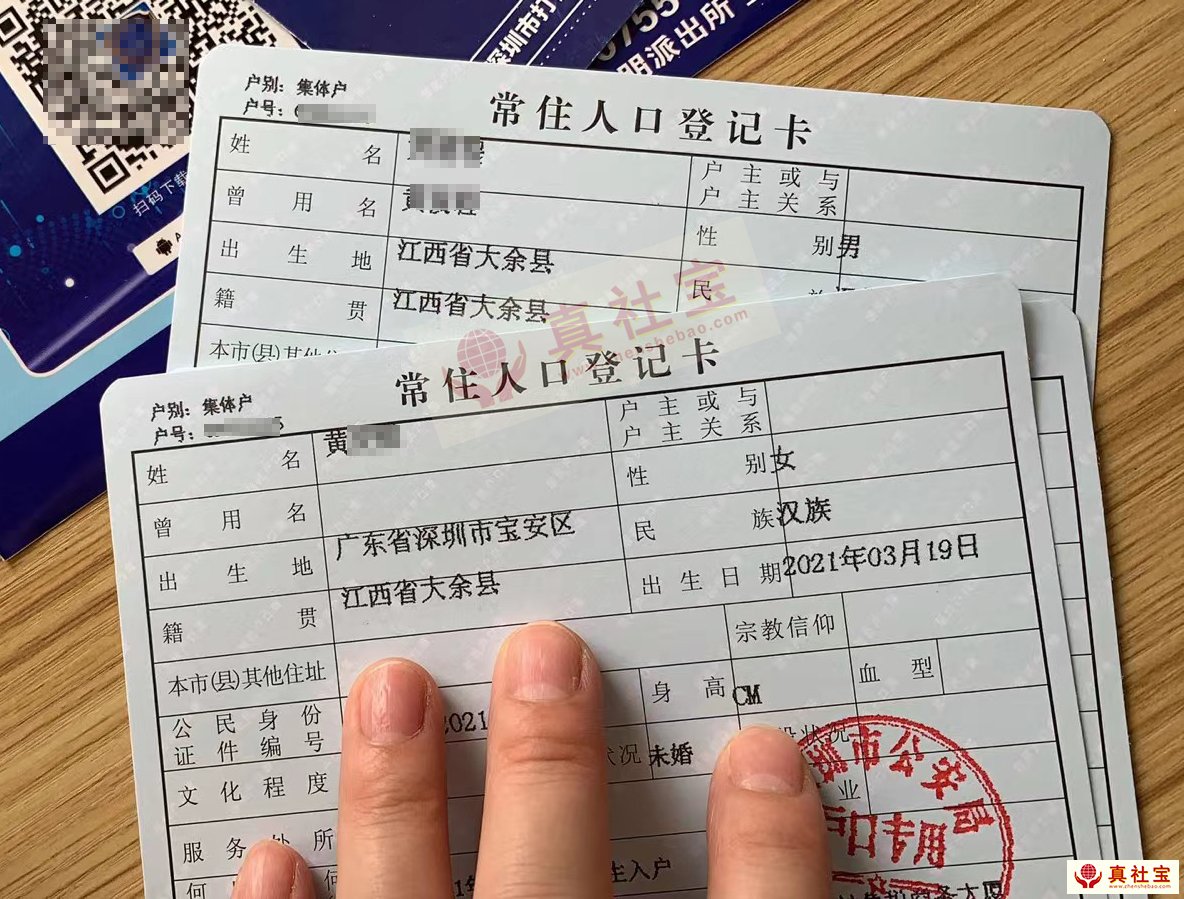 深圳市打
0755
明派出所
扫码下载
户别: 集体户
户号: 6
常住人口登记卡
姓名
户主或与户主关系
曾用名 黄
性别 男
出生地 江西省大余县
民
籍贯 江西省大余县
本市(县)其他
真社宝
www.zhenshebao.com
户别: 集体户
户号:
常住人口登记卡
姓名 黄
户主或与户主关系
曾用名
性别 女
出生地 广东省深圳市宝安区
民族 汉族
籍贯 江西省大余县
出生日期 2021年03月19日
本市(县)其他住址
宗教信仰
公民身份证件编号 2021
身高 CM
血型
文化程度
状况 未婚
状况
业
服务处所
市公安局
户口专用
何
生入户
真社宝
www.zhenshebao.com